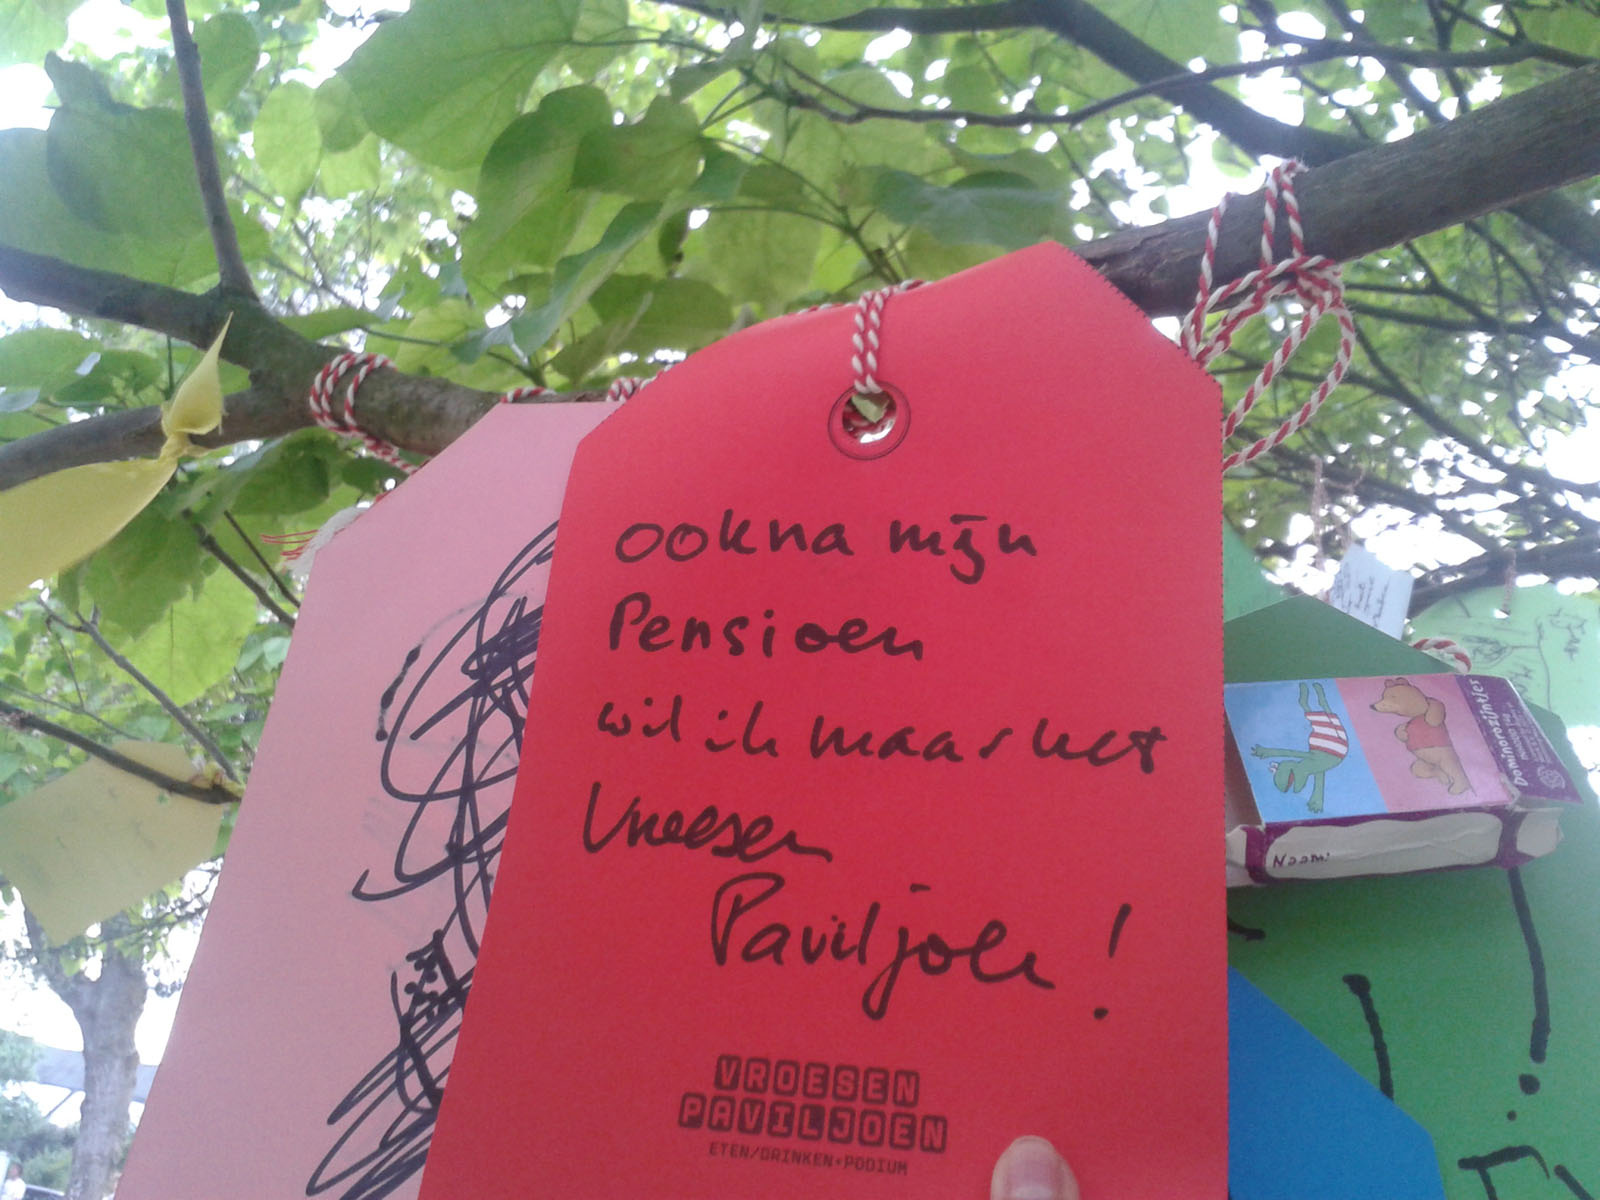 ookna mijn
Pensioen
wil ik maar het
Vroesen
Paviljoen!
VROESEN
PAVILJOEN
ETEN/DRINKEN+PODIUM
Dominorozijntjes
Naam: